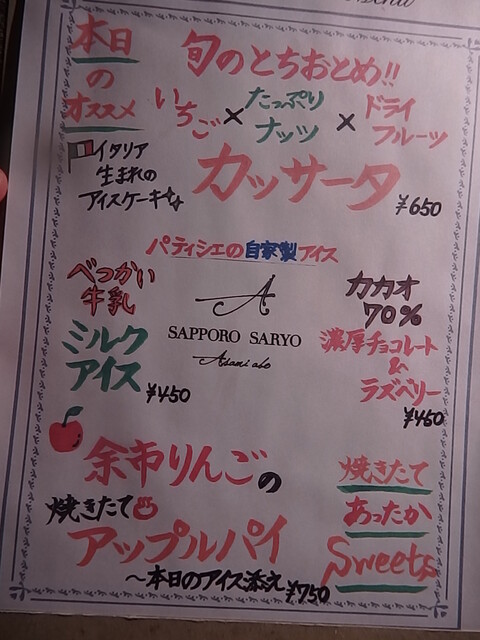 本日
の
オススメ
旬のとちおとめ!!
いちご×たっぷりナッツ×ドライフルーツ
イタリア
生まれの
アイスケーキ
カッサータ
¥650
パティシエの自家製アイス
べつかい
牛乳
ミルク
アイス
¥450
SAPPORO SARYO
カカオ
70%
濃厚チョコレート
&
ラズベリー
¥450
余市りんごの
焼きたて
アップルパイ
~本日のアイス添え ¥750
焼きたて
あったか
Sweets